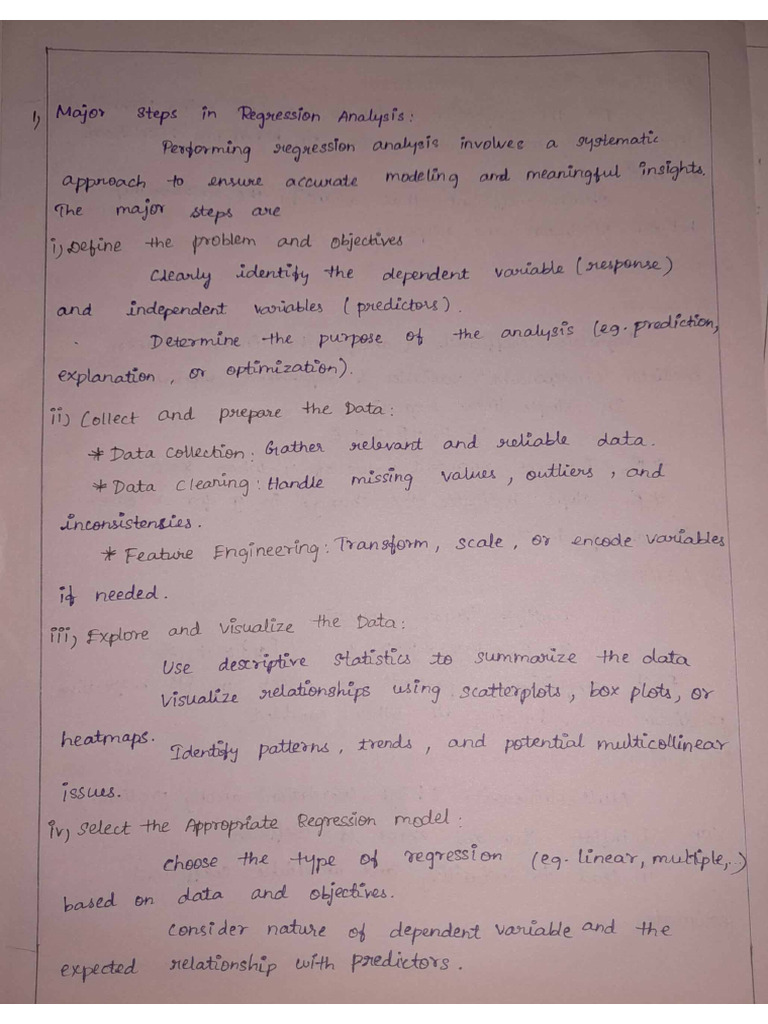 1) Major Steps in Regression Analysis:
Performing regression analysis involves a systematic
approach to ensure accurate modeling and meaningful insights.
The major steps are
i) Define the problem and objectives
Clearly identify the dependent variable (response)
and independent variables (predictors).
Determine the purpose of the analysis (eg. prediction,
explanation, or optimization).
ii) Collect and prepare the Data:
* Data Collection: Gather relevant and reliable data.
* Data Cleaning: Handle missing values, outliers, and
inconsistensies.
* Feature Engineering: Transform, scale, or encode variables
if needed.
iii) Explore and visualize the Data:
Use descriptive statistics to summarize the data
Visualize relationships using scatterplots, box plots, or
heatmaps. Identify patterns, trends, and potential multicollinear
issues.
iv) Select the Appropriate Regression model:
Choose the type of regression (eg. linear, multiple,..)
based on data and objectives.
Consider nature of dependent variable and the
expected relationship with predictors.